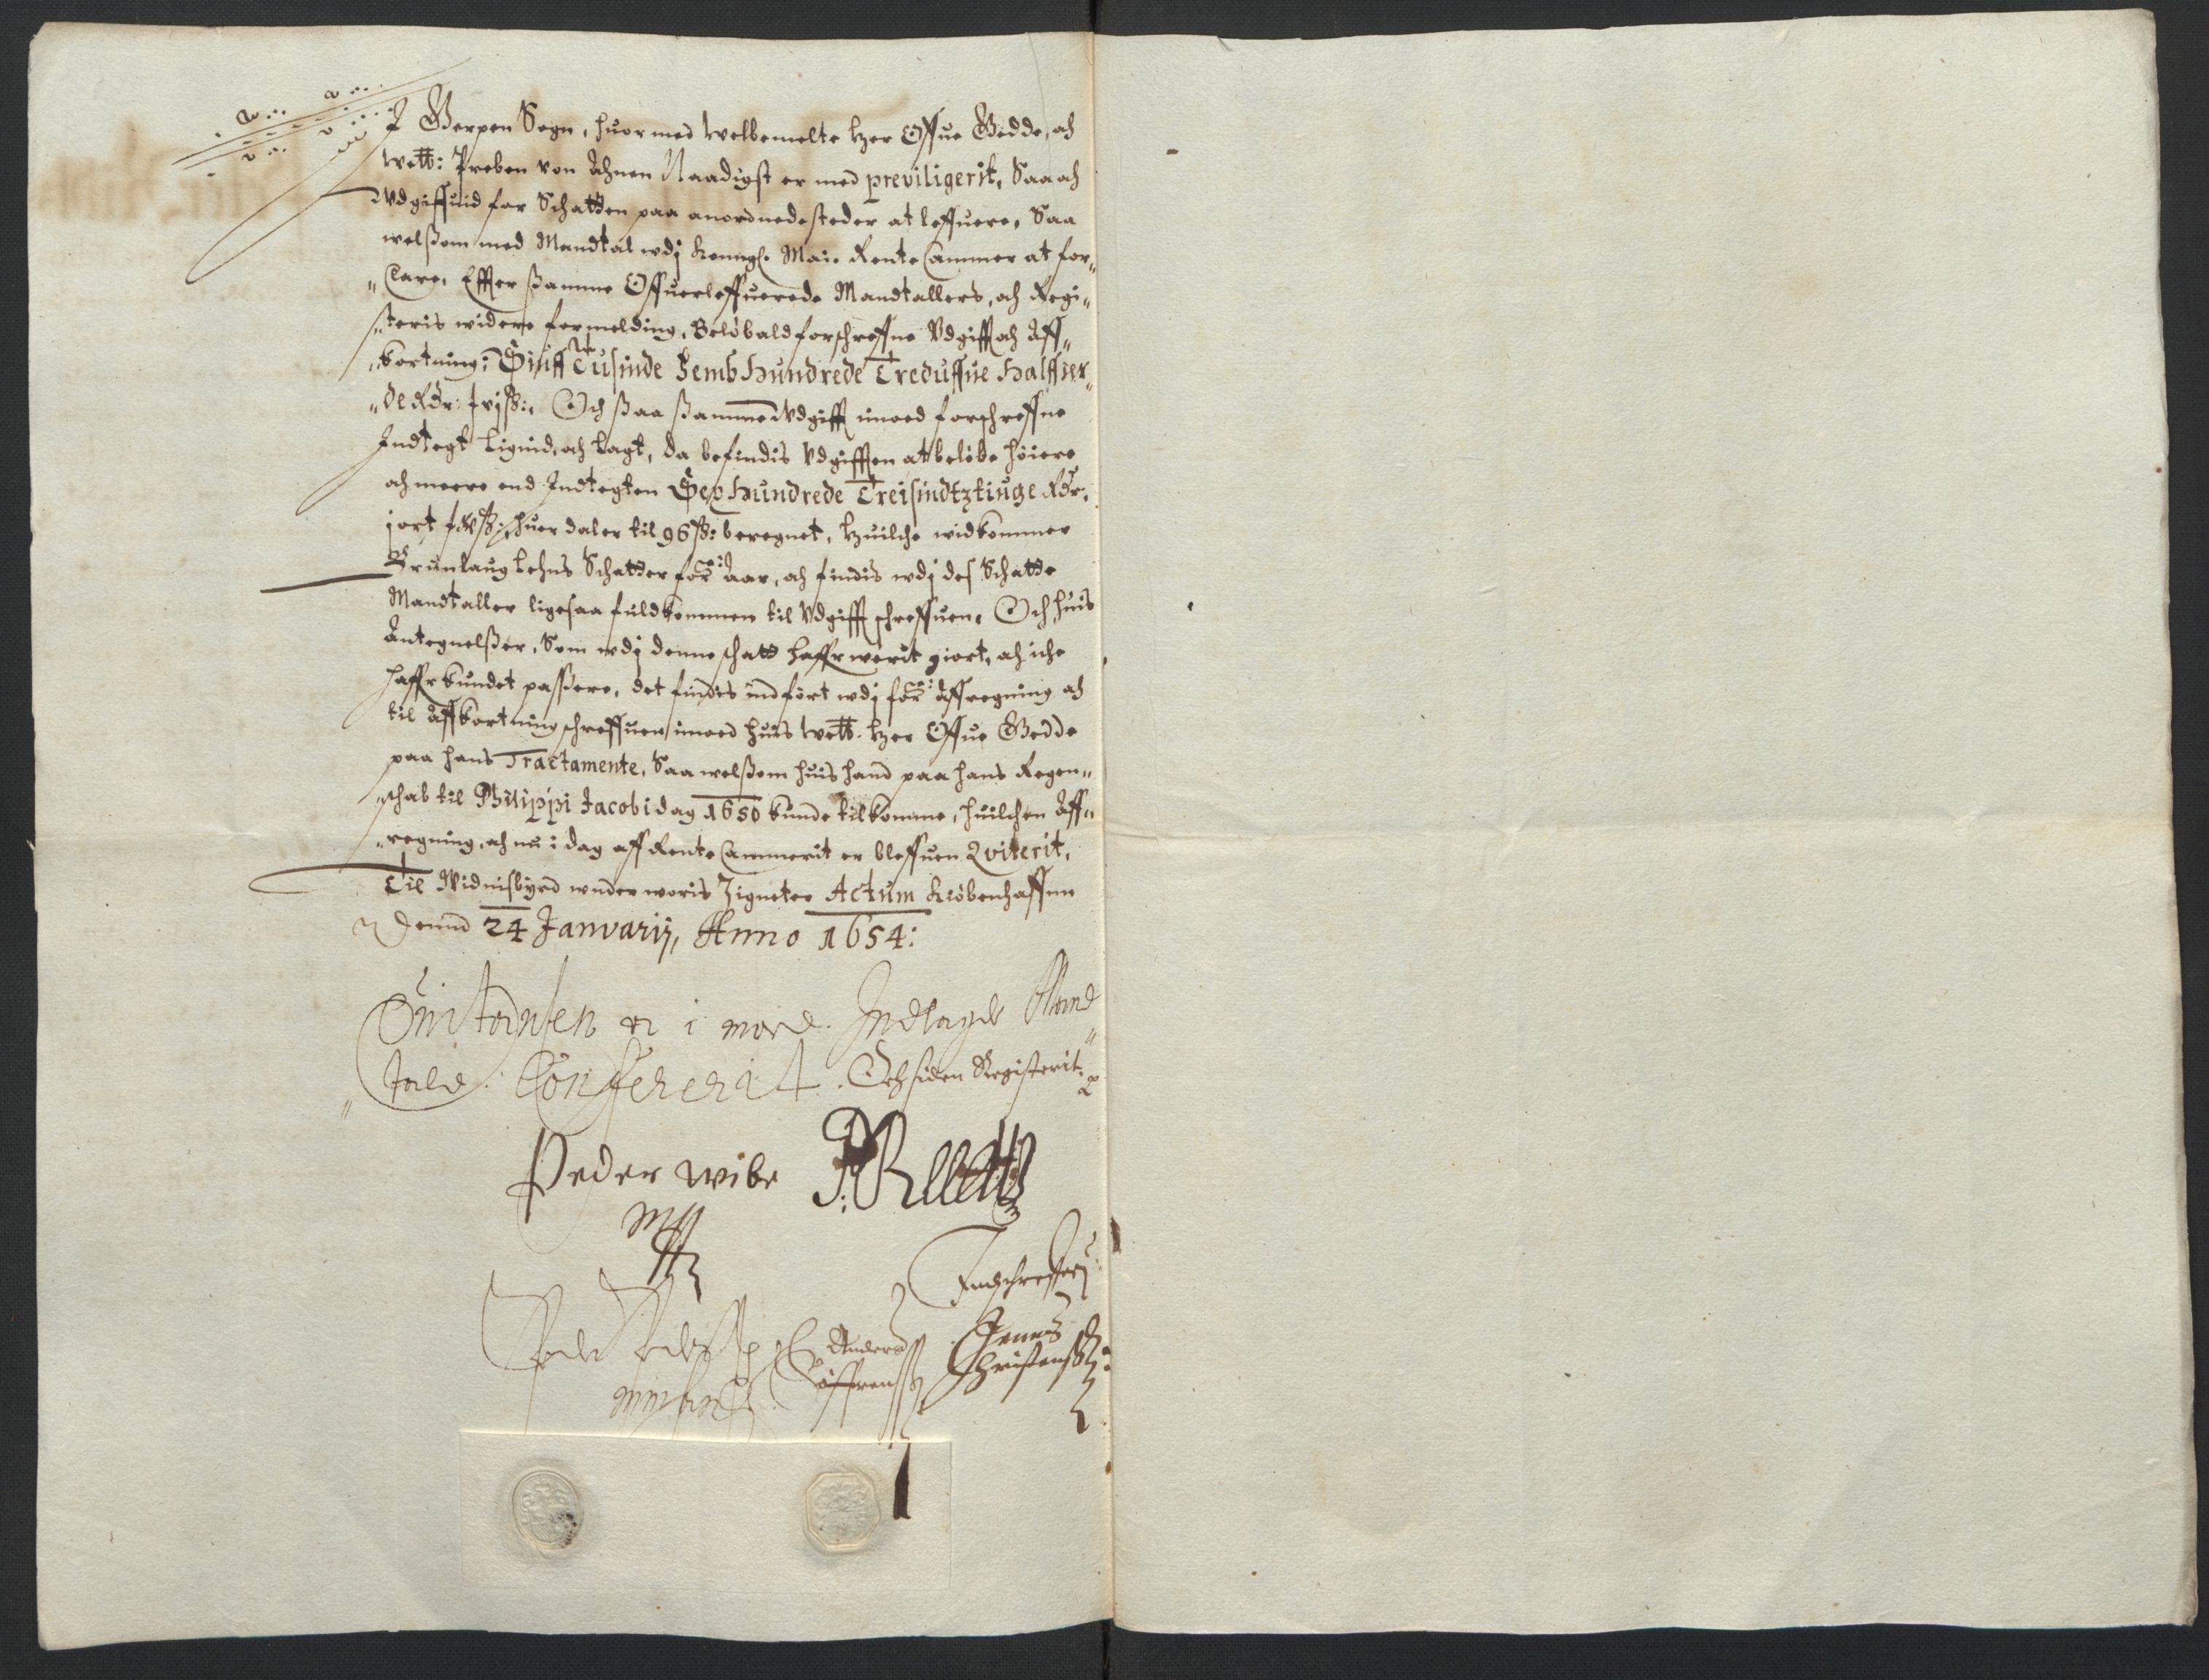 J Gerpen Sogn, huormed welbemelte Her Offue Gedde, och
welb: Preben von Ahnen Naadigst er med previligerit, Saa och
Vdgiffuid for Schatten paa anordnede steder at leffuere, Saa
velsom med Mandtal udj Konngl. Mai. Rente Cammer at for„
„Clare, Effter samme Offuerleffuerede Mandtallers, och Regi„
„steris widere formelding, Beløb ald forschreffne Vdgifft och Aff„
„kortning: Siuff Tusinde Femb Hundrede Treduffue Halffier„
„de Rdr: Och saa samme Vdgifft imoed forschreffne
Indtegt Lignid, och Lagt, da befindis Vdgifften at beløbe høiere
och meere end Indtegten Sex Hundrede Treisindtztiuge Rdr:
j ort huer daler til 96 ß: beregnet, Huilche widkommer
Brunlaug Lehns Schatter for: aar, och findis udj des Schatte
Mandtaller ligesaa fuldkommen til Vdgifft schreffuen, Och huis
Antegnelßer, Som udj denne schatt haffr werit giort, och iche
haffr kundet passere, det findis indført udj for: Affregning och
til Affkortning schreffuen imoed huis welb. Her Offue Gedde
paa hans Tractamente, Saa welsom huis hand paa hans Regen„
„schab til Philippi Jacobi dag 1650 kunde tilkomme, Huilchen Aff„
„regning, och nu i dag aff Rente Cammerit er bleffuen Qviterit,
Til Widnisbyrd under woris Zigneter Actum Kiøbenhaffnn
Dennd 24 Januarij, Anno 1654:
Quitantzen er i moed Indlagde Mand„
„tale Confererit. Och siden Registerit.
Peder Wibe
Mpp
Indschreffuen
Anders Jenns
Christens